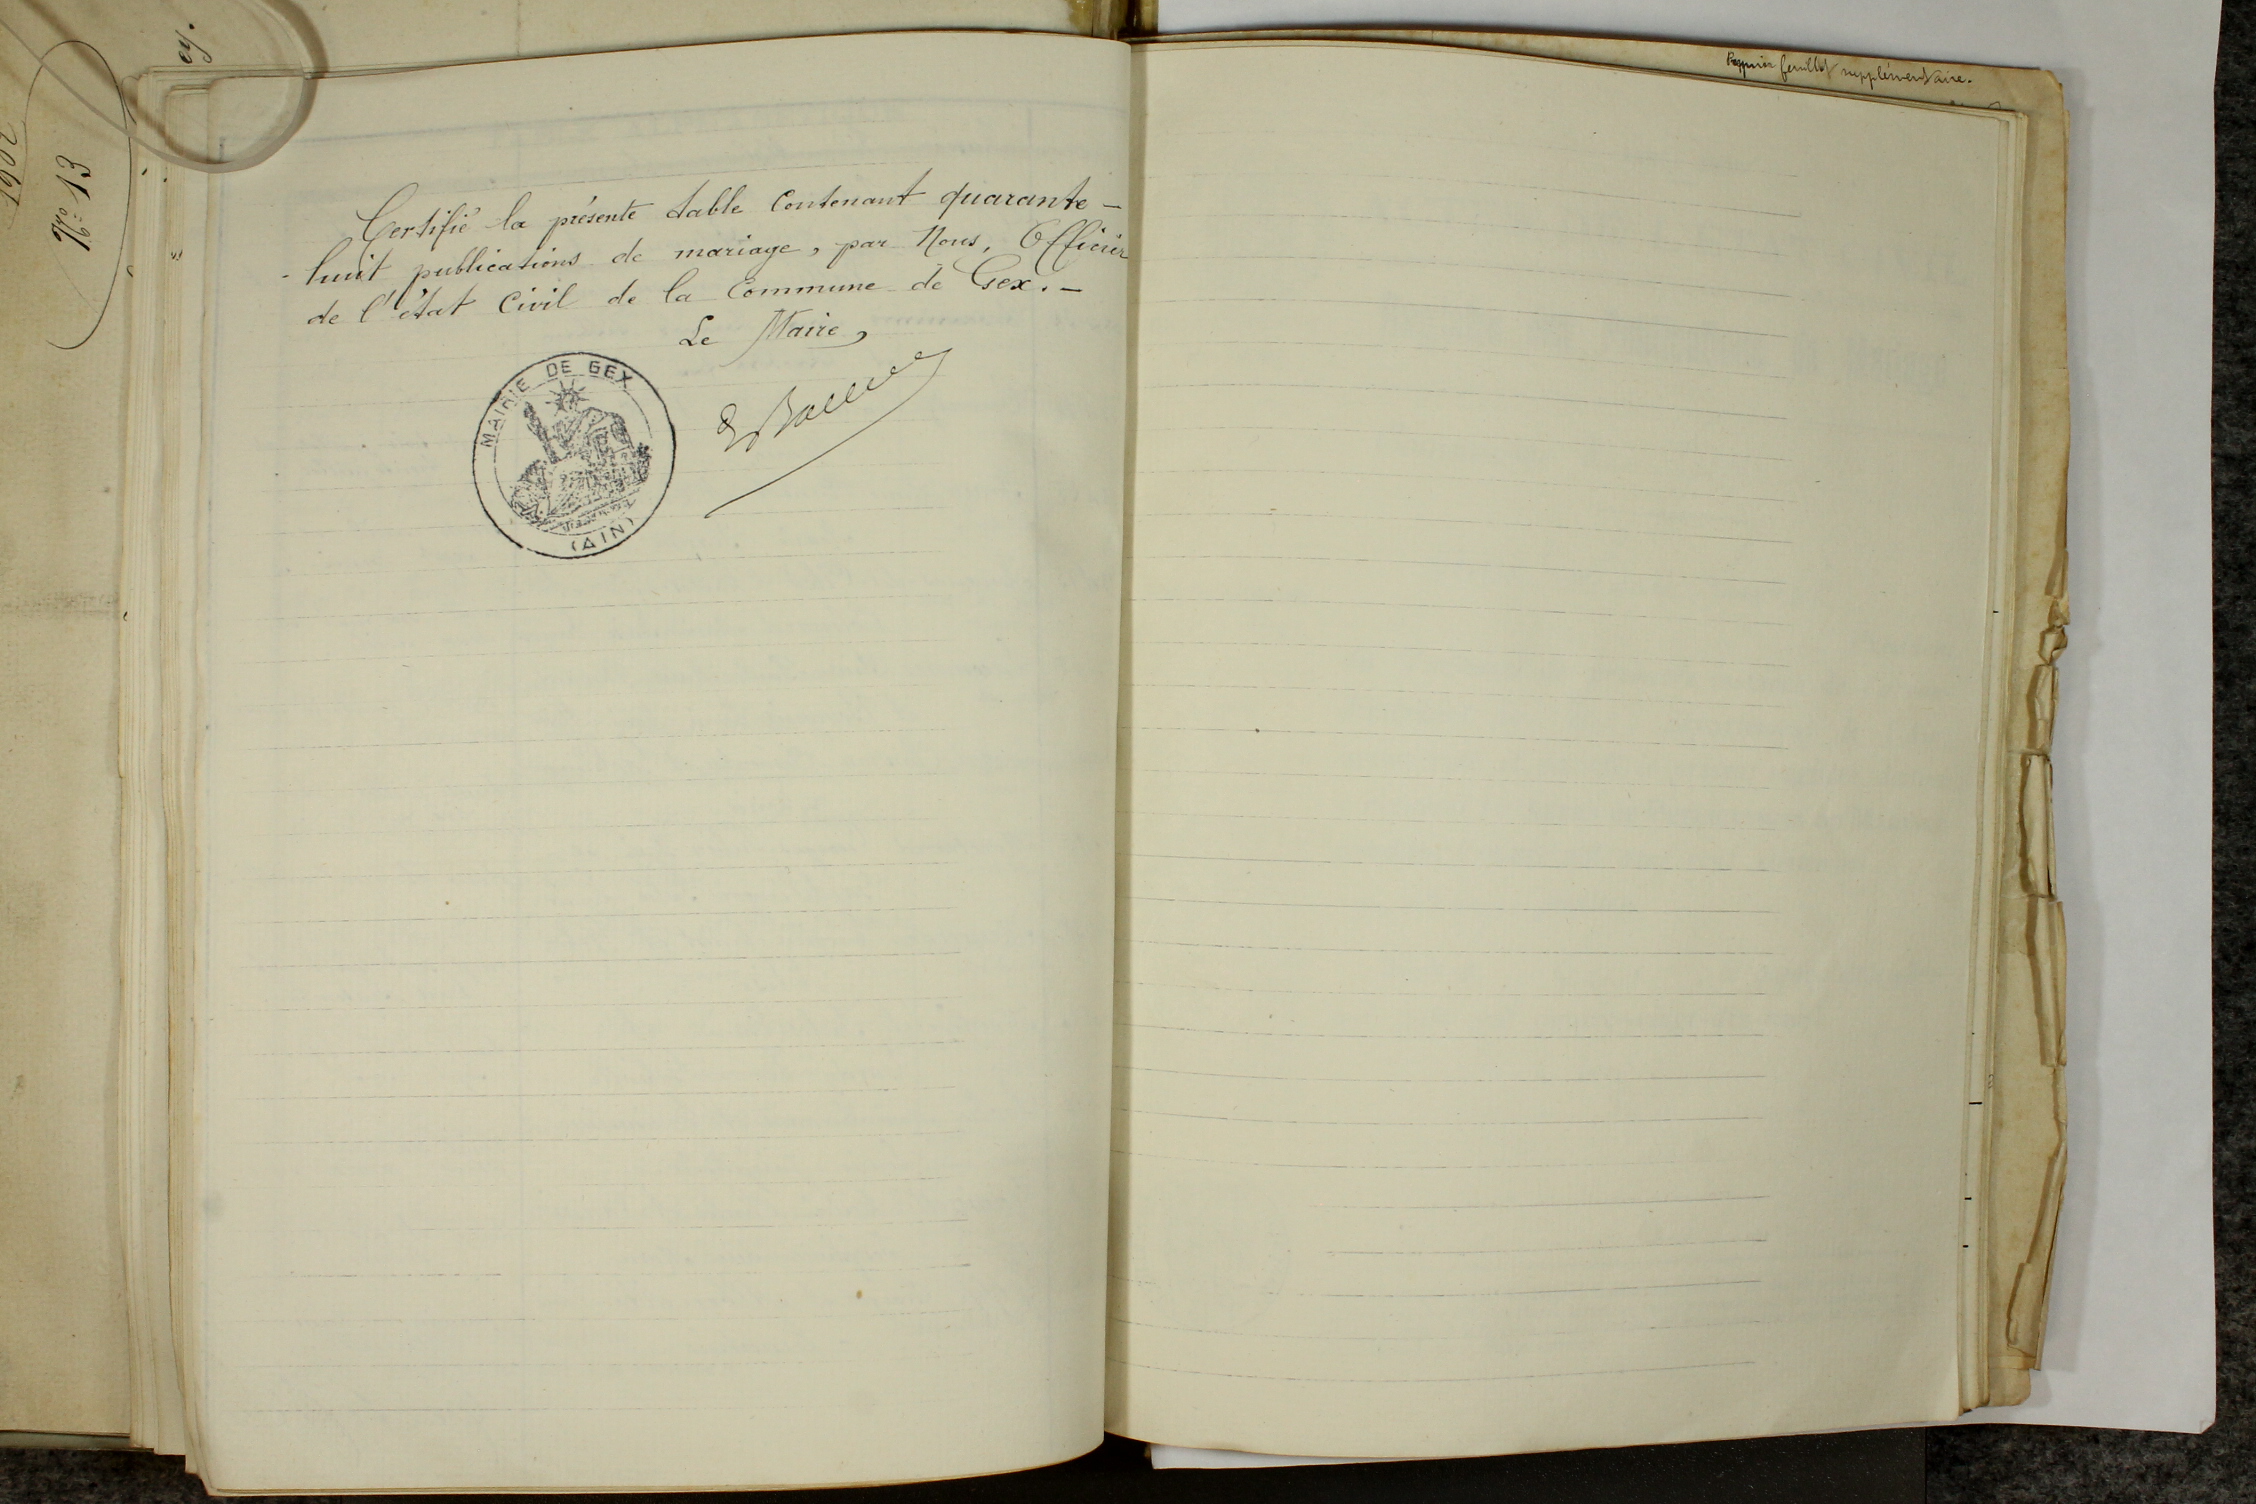 Certifié la présente table contenant quarante-
-huit publications de mariage, par Nous, Officier
de l'état Civil de la Commune de Gex. -
Le Maire,
MAIRIE DE GEX
(AIN)
feuillet supplémentaire.
ey.
1902
N° 13